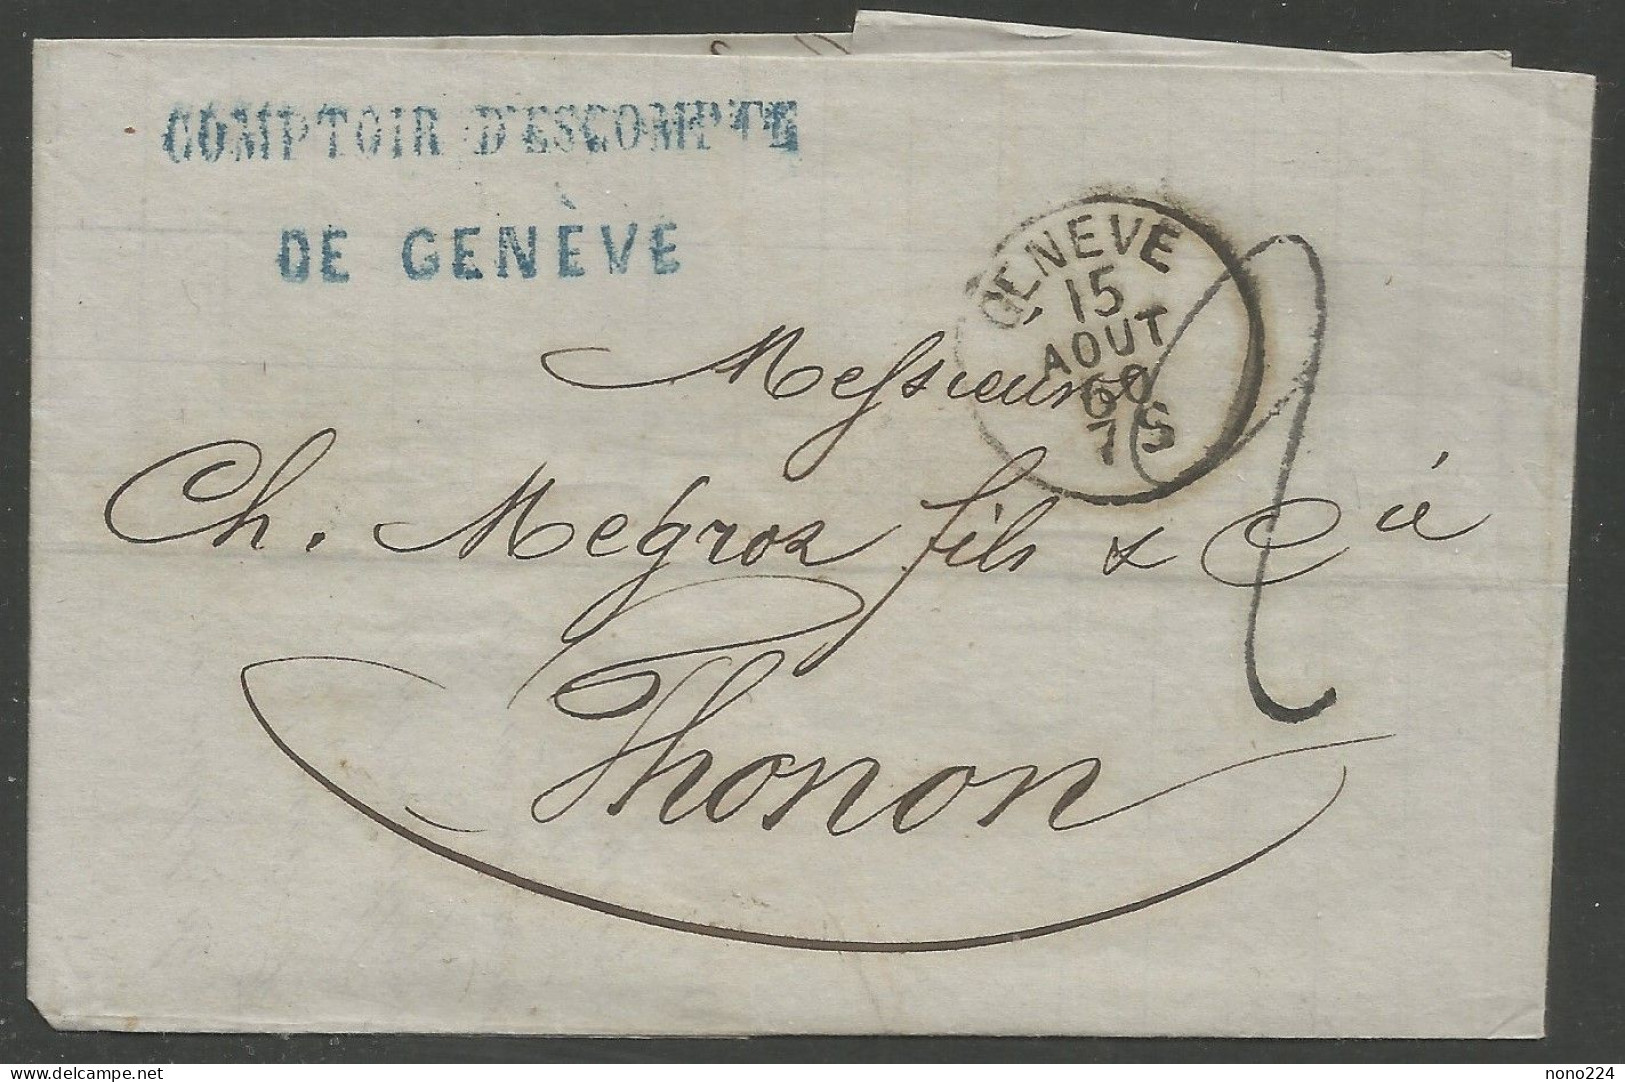 COMPTOIR D'ESCOMPTE
DE GENÈVE
GENÈVE
15
AOUT
60
7 S
Messieurs
Ch. Megroz fils & Cie
Thonon
www.delcampe.net
nono224